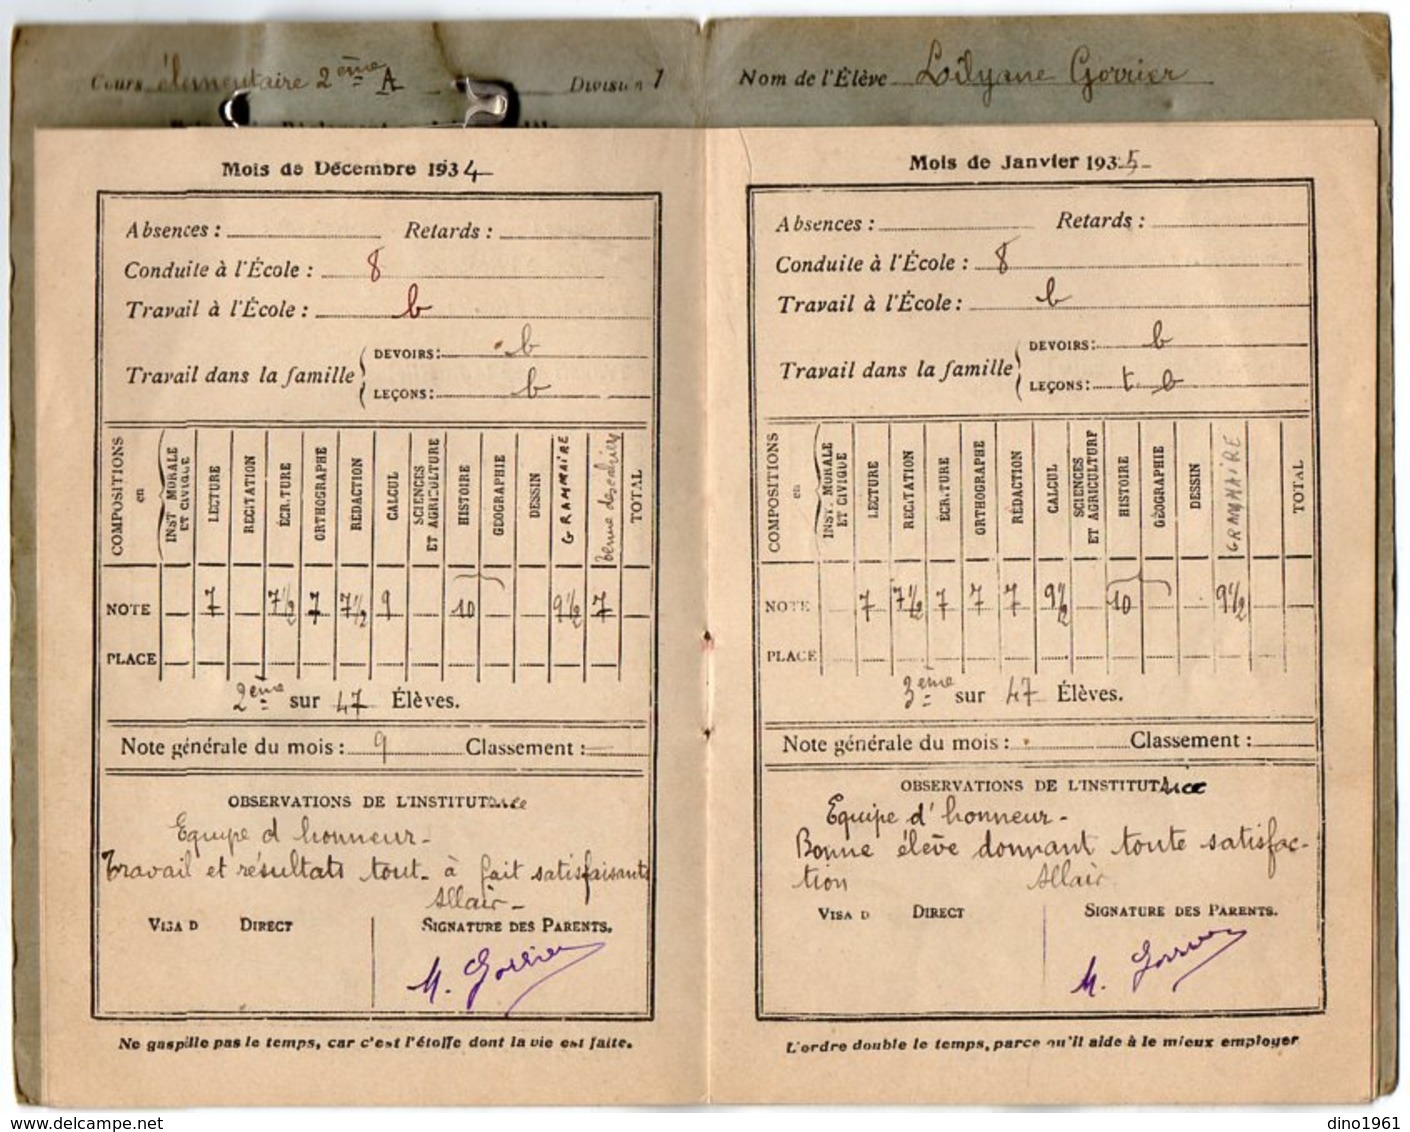 Cours élémentaire 2ème A Division 1
Nom de l'Élève Lilyane Gorrier
Mois de Décembre 1934
Absences : Retards :
Conduite à l'École : 8
Travail à l'École : b
Travail dans la famille
DEVOIRS : b
LEÇONS : b
COMPOSITIONS en
INST MORALE ET CIVIQUE
LECTURE
RECITATION
ÉCRITURE
ORTHOGRAPHE
REDACTION
CALCUL
SCIENCES ET AGRICULTURE
HISTOIRE
GÉOGRAPHIE
DESSIN
GRAMMAIRE
Tenue des cahiers
TOTAL
NOTE 7 7 1/2 7 7 1/2 9 10 9 1/2 7
PLACE
2ème sur 47 Élèves.
Note générale du mois : 9 Classement :
OBSERVATIONS DE L'INSTITUTrice
Equipe d'honneur -
Travail et résultats tout à fait satisfaisants
Allair -
VISA D DIRECT SIGNATURE DES PARENTS.
M. Gorrier
Ne gaspille pas le temps, car c'est l'étoffe dont la vie est faite.
Mois de Janvier 1935
Absences : Retards :
Conduite à l'École : 8
Travail à l'École : b
Travail dans la famille
DEVOIRS : b
LEÇONS : t b
COMPOSITIONS en
INST. MORALE ET CIVIQUE
LECTURE
RECITATION
ÉCRITURE
ORTHOGRAPHE
RÉDACTION
CALCUL
SCIENCES ET AGRICULTURE
HISTOIRE
GÉOGRAPHIE
DESSIN
GRAMMAIRE
TOTAL
NOTE 7 7 1/2 7 7 7 9 1/2 10 9 1/2
PLACE
3ème sur 47 Élèves.
Note générale du mois : Classement :
OBSERVATIONS DE L'INSTITUTrice
Equipe d'honneur -
Bonne élève donnant toute satisfac-
tion Allair
VISA D DIRECT SIGNATURE DES PARENTS.
M. Gorrier
L'ordre double le temps, parce qu'il aide à le mieux employer
www.delcampe.net
dino1961